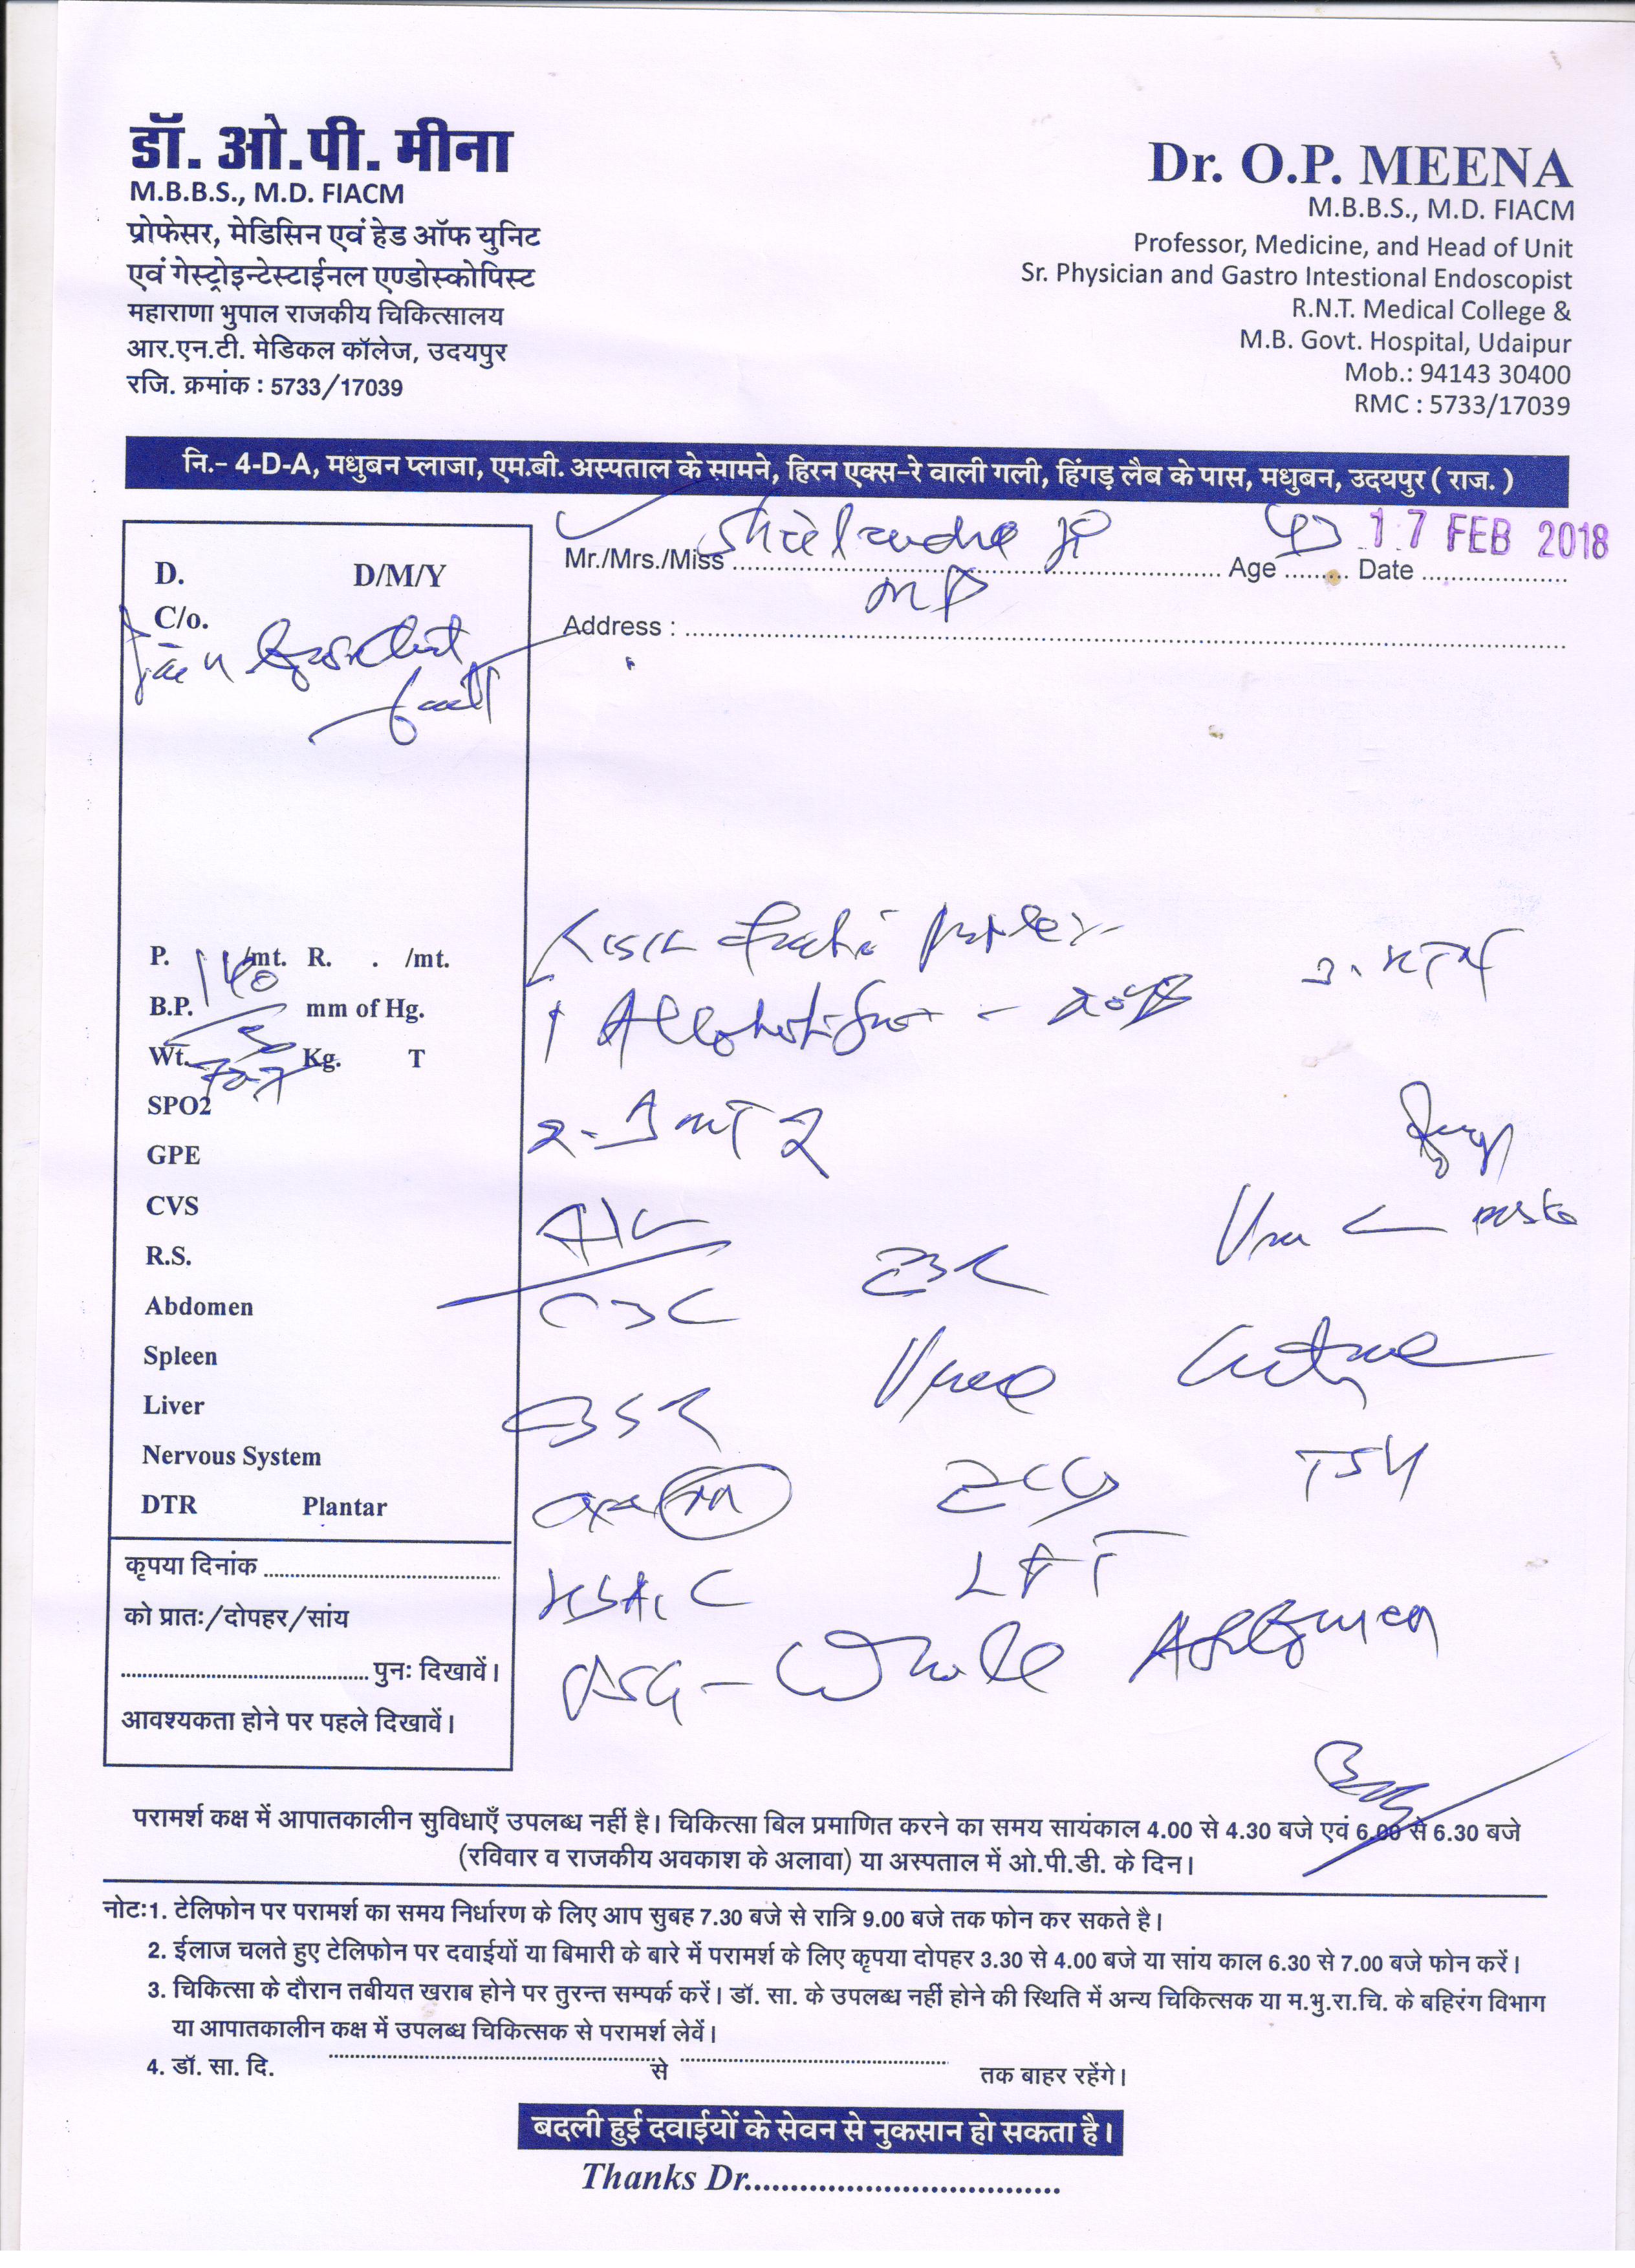 डॉ. ओ.पी. मीना
M.B.B.S., M.D. FIACM
प्रोफेसर, मेडिसिन एवं हेड ऑफ युनिट
एवं गेस्ट्रोइन्टेस्टाईनल एण्डोस्कोपिस्ट
महाराणा भुपाल राजकीय चिकित्सालय
आर.एन.टी. मेडिकल कॉलेज, उदयपुर
रजि. क्रमांक : 5733/17039
Dr. O.P. MEENA
M.B.B.S., M.D. FIACM
Professor, Medicine, and Head of Unit
Sr. Physician and Gastro Intestional Endoscopist
R.N.T. Medical College &
M.B. Govt. Hospital, Udaipur
Mob.: 94143 30400
RMC : 5733/17039
नि.- 4-D-A, मधुबन प्लाजा, एम.बी. अस्पताल के सामने, हिरन एक्स-रे वाली गली, हिंगड़ लैब के पास, मधुबन, उदयपुर ( राज. )
Mr./Mrs./Miss Age Date 17 FEB 2018
Address :
D. D/M/Y
C/o.
P. /mt. R. . /mt.
B.P. 140 mm of Hg.
Wt. Kg. T
SPO2
GPE
CVS
R.S.
Abdomen
Spleen
Liver
Nervous System
DTR Plantar
कृपया दिनांक
को प्रातः/दोपहर/सांय
पुनः दिखावें।
आवश्यकता होने पर पहले दिखावें।
3. HTN
CBC
Urine Culture
ECG TSH
LFT
USG - Whole Abdomen
परामर्श कक्ष में आपातकालीन सुविधाएँ उपलब्ध नहीं है। चिकित्सा बिल प्रमाणित करने का समय सायंकाल 4.00 से 4.30 बजे एवं 6.00 से 6.30 बजे
(रविवार व राजकीय अवकाश के अलावा) या अस्पताल में ओ.पी.डी. के दिन।
नोटः1. टेलिफोन पर परामर्श का समय निर्धारण के लिए आप सुबह 7.30 बजे से रात्रि 9.00 बजे तक फोन कर सकते है।
2. ईलाज चलते हुए टेलिफोन पर दवाईयों या बिमारी के बारे में परामर्श के लिए कृपया दोपहर 3.30 से 4.00 बजे या सांय काल 6.30 से 7.00 बजे फोन करें।
3. चिकित्सा के दौरान तबीयत खराब होने पर तुरन्त सम्पर्क करें। डॉ. सा. के उपलब्ध नहीं होने की स्थिति में अन्य चिकित्सक या म.भु.रा.चि. के बहिरंग विभाग
या आपातकालीन कक्ष में उपलब्ध चिकित्सक से परामर्श लेवें।
4. डॉ. सा. दि. से तक बाहर रहेंगे।
बदली हुई दवाईयों के सेवन से नुकसान हो सकता है।
Thanks Dr.